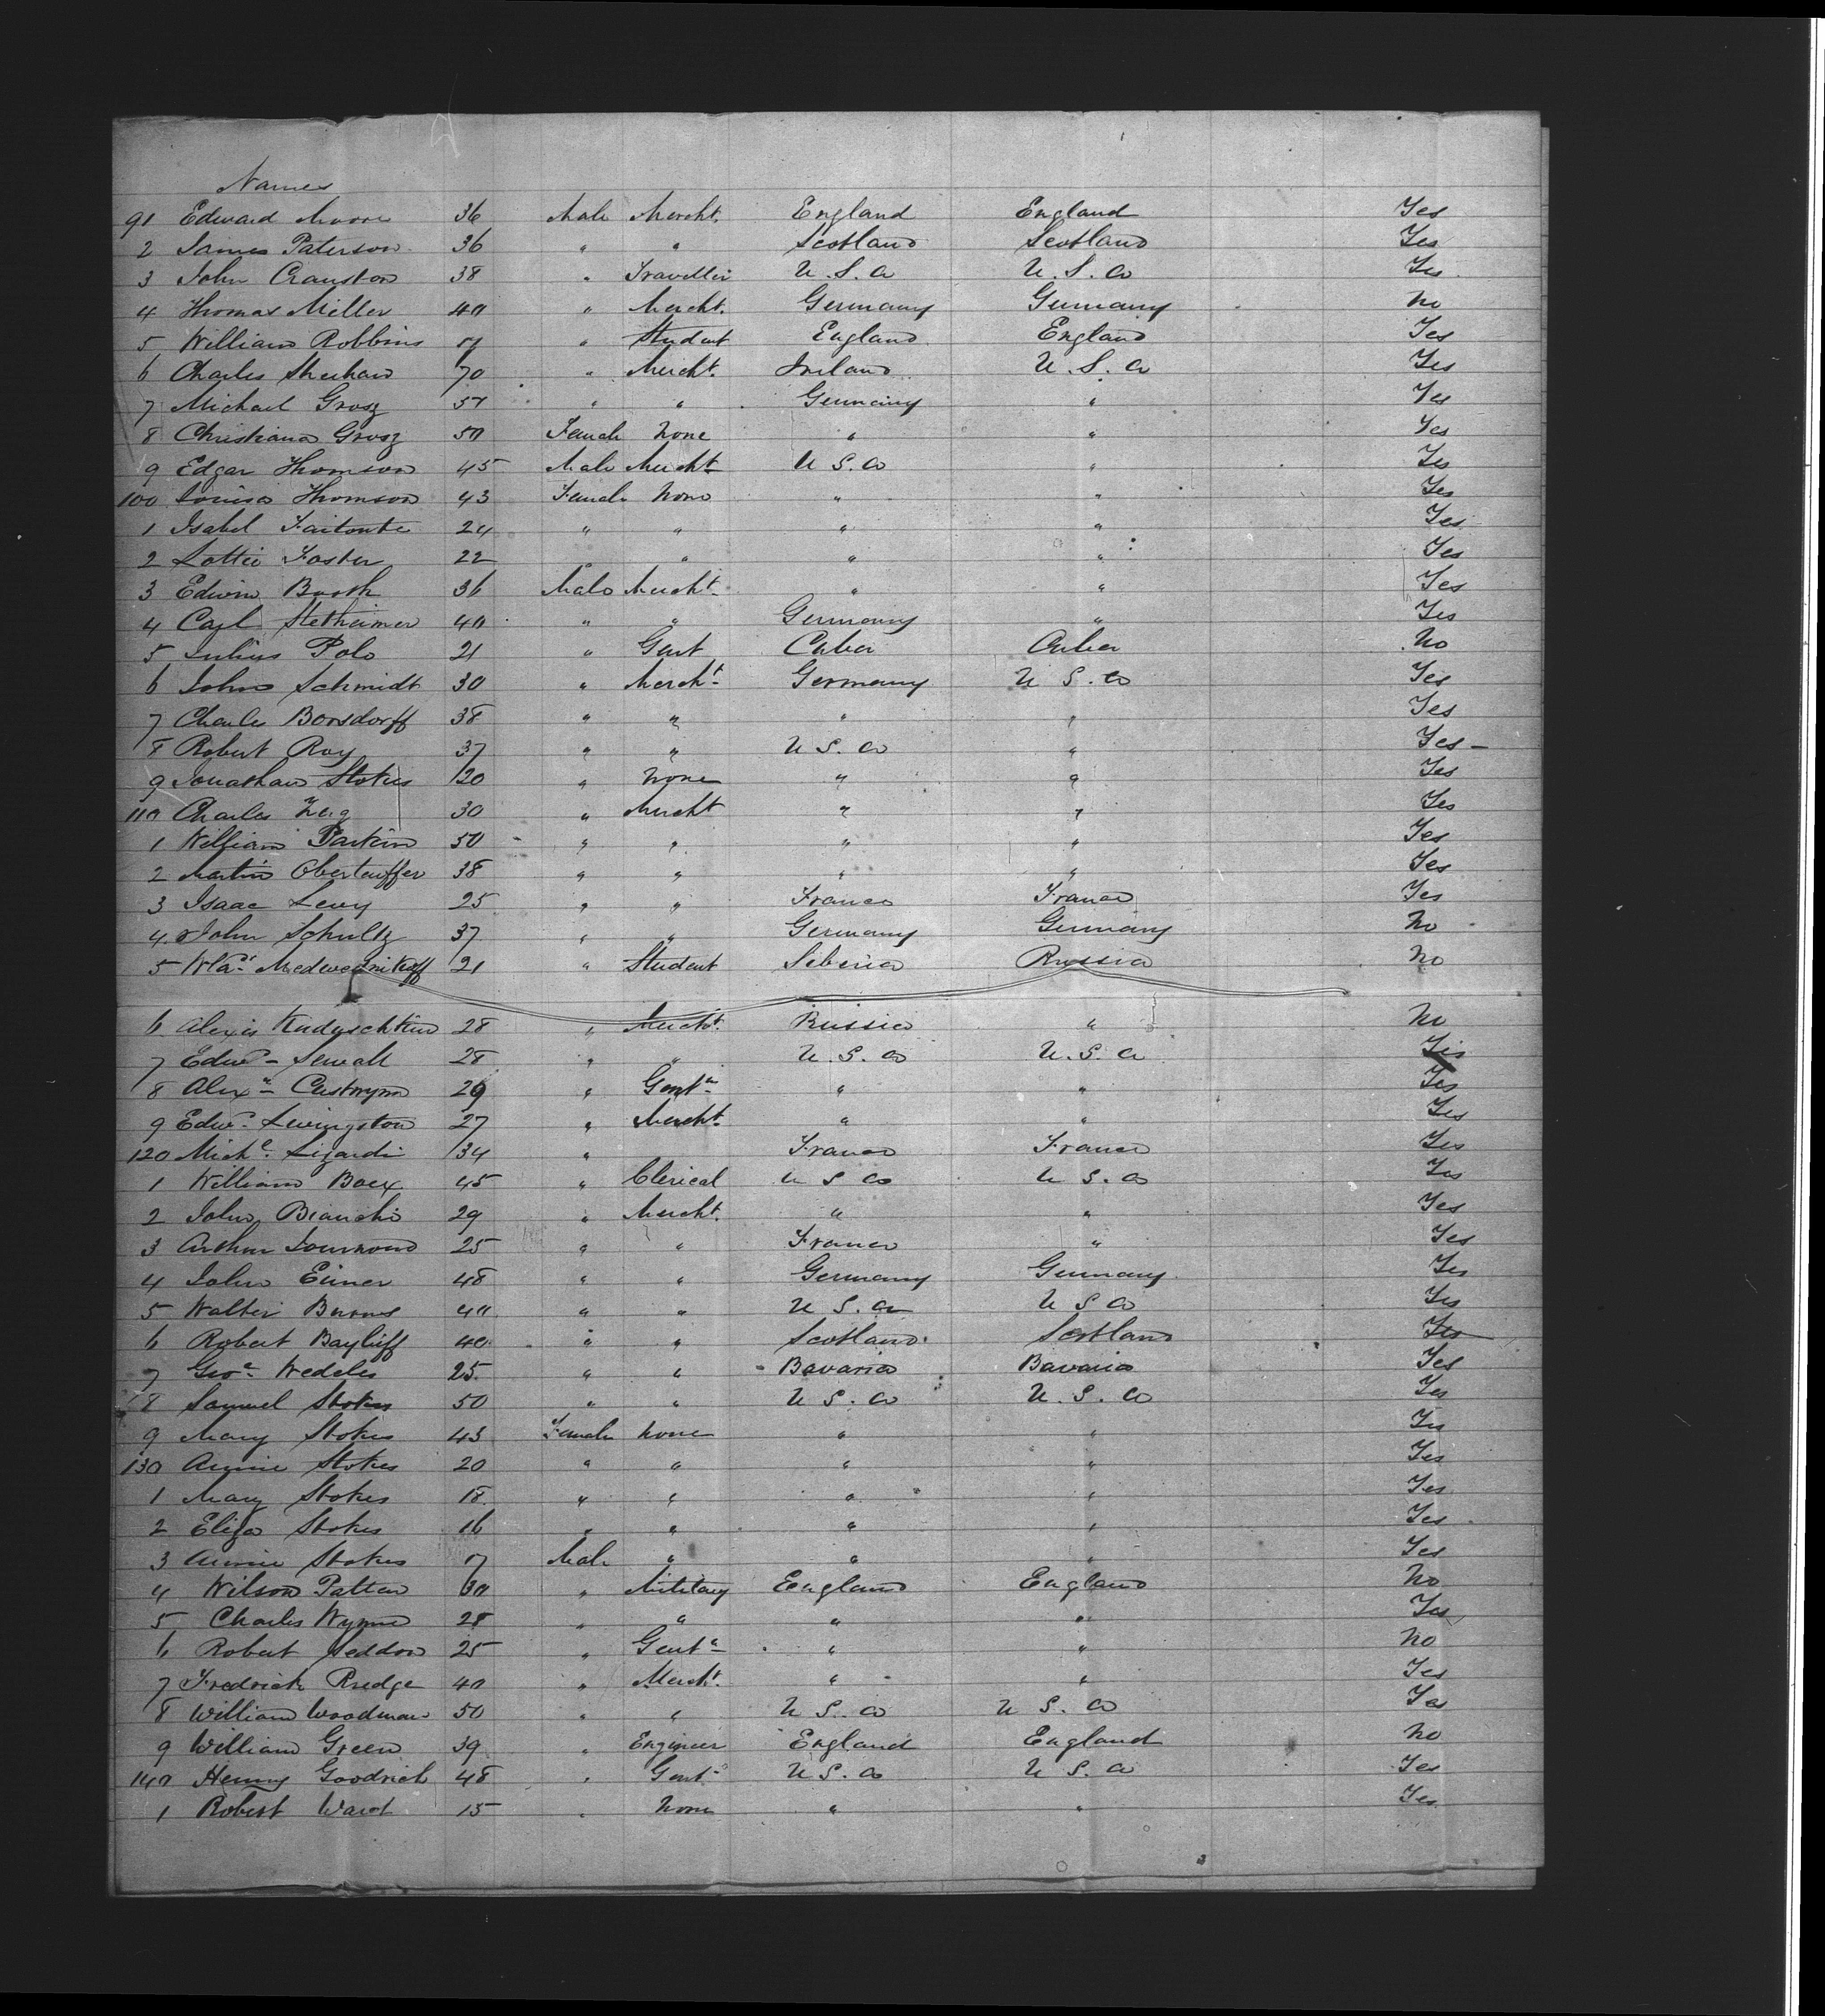 Names
91 Edward Moore 36 Male Mercht. England England Yes
2 James Paterson 36 " " Scotland Scotland Yes
3 John Cranston 38 " Traveller U.S.a U.S.a Yes
4 Thomas Miller 40 " Mercht. Germany Germany No
5 William Robbins 17 " Student England England Yes
6 Charles Sheehan 70 " Mercht. Ireland U.S.a Yes
7 Michael Grosz 51 " " Germany " Yes
8 Christiana Grosz 50 Female None " " Yes
9 Edgar Thomson 45 Male Mercht U S.a " Yes
100 Louisa Thomson 43 Female None " " Yes
1 Isabel Faitoute 24 " " " " Yes
2 Lottie Foster 22 " " " " Yes
3 Edwin Booth 36 Male Mercht " " Yes
4 Carl Stetheimer 40 " " Germany " Yes
5 Julius Polo 21 " Gent Cuba Cuba No
6 John Schmidt 30 " Mercht Germany U S.a Yes
7 Charles Borsdorff 38 " " " " Yes
8 Robert Roy 37 " " U S.a " Yes
9 Jonathan Stokes 20 " None " " Yes
110 Charles 30 " Mercht " " Yes
1 William Parkin 50 " " " " Yes
2 Martin Oberteuffer 38 " " " " Yes
3 Isaac Levy 25 " " France France Yes
4 John Schultz 37 " " Germany Germany No
5 Wla. Medwednikoff 21 " Student Siberia Russia No
6 Alexis Kudyschkin 28 " Mercht. Russia " No
7 Edwd Sewall 28 " " U.S.a U.S.a Yes
8 Alexr 29 " Gentn " " Yes
9 Edwd. Livingston 27 " Mercht. " " Yes
120 Michl. Lizardi 34 " France France Yes
1 William 45 " Clerical U S a U S.a Yes
2 John Bianchi 29 " Mercht. " " Yes
3 Arthur 25 " " France " Yes
4 John Eimer 48 " " Germany Germany Yes
5 Walter Burns 40 " " U S.a U S a Yes
6 Robert Bayliff 40 " " Scotland Scotland Yes
7 Geoe. Wedeles 25 " " Bavaria Bavaria Yes
8 Samuel Stokes 50 " " U S.a U.S.a Yes
9 Mary Stokes 43 Female None " " Yes
130 Annie Stokes 20 " " " " Yes
1 Mary Stokes 18 " " " " Yes
2 Eliza Stokes 16 " " " " Yes
3 Annie Stokes 17 Male " " " Yes
4 Wilson Patten 30 " Military England England No
5 Charles Wynne 28 " " " " Yes
6 Robert Seddon 25 " Gentn " " No
7 Fredrick Rudge 40 " Mercht. " " Yes
8 William Woodman 50 " " U S.a U S.a Yes
9 William Green 39 " Engineer England England No
140 Henry Goodrich 48 " Gentn U S.a U S.a Yes
1 Robert Ward 15 " None " " Yes